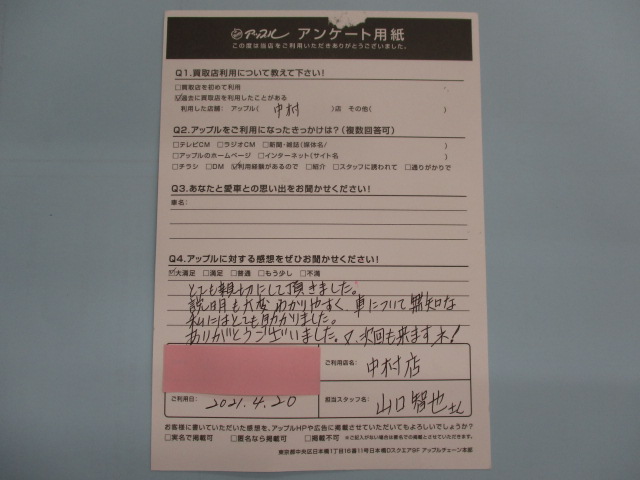 アップル アンケート用紙
この度は当店をご利用いただきありがとうございました。
Q1.買取店利用について教えて下さい!
□買取店を初めて利用
☑過去に買取店を利用したことがある
利用した店舗: アップル( 中村 )店 その他( )
Q2.アップルをご利用になったきっかけは?(複数回答可)
□テレビCM □ラジオCM □新聞・雑誌(媒体名/ )
□アップルのホームページ □インターネット(サイト名 )
□チラシ □DM ☑利用経験があるので □紹介 □スタッフに誘われて □通りがかりで
Q3.あなたと愛車との思い出をお聞かせください!
車名:
Q4.アップルに対する感想をぜひお聞かせください!
☑大満足 □満足 □普通 □もう少し □不満
とても親切にして頂きました。
説明も大変わかりやすく、車について無知な
私にはとても助かりました。
ありがとうございました。 次回も来ますネ!
ご利用店名: 中村店
ご利用日: 2021.4.20
担当スタッフ名: 山口智也さん
お客様に書いていただいた感想を、アップルHPや広告に掲載させていただいてもよろしいでしょうか?
□実名で掲載可 □匿名なら掲載可 □掲載不可 ※ご記入がない場合は匿名での掲載とさせていただきます。
東京都中央区日本橋1丁目16番11号日本橋Dスクエア9F アップルチェーン本部